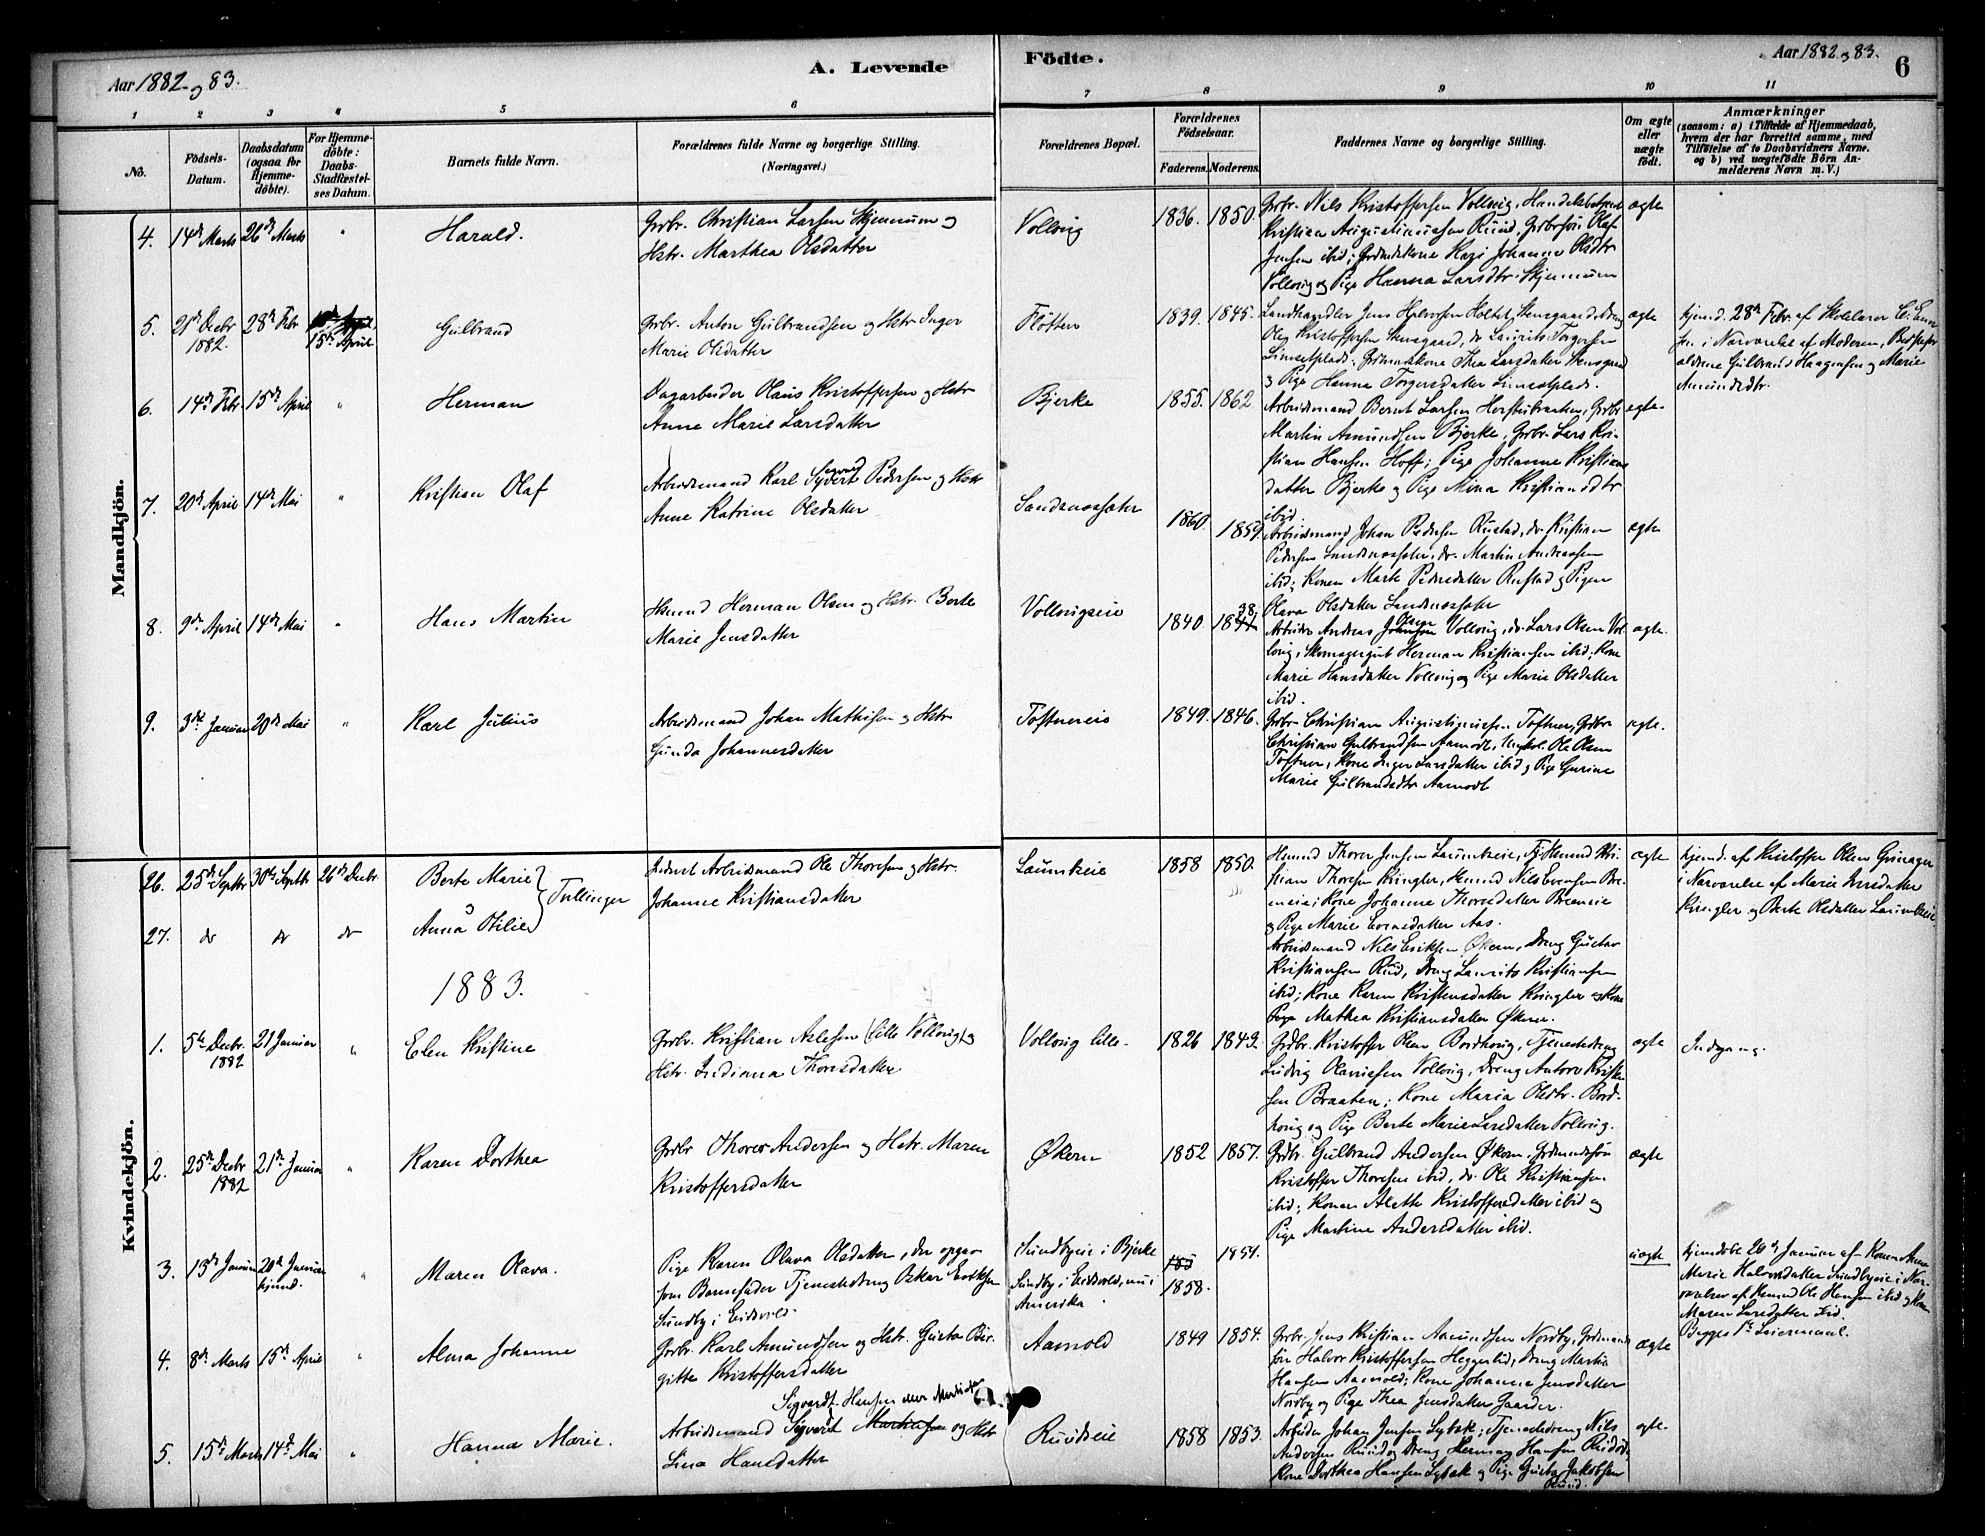 Aar 1882 og 83.
A. Levende
Födte.
Aar 1882 og 83.
6
1 2 3 4 5 6 7 8 9 10 11
No.
Födsels-
Datum.
Daabsdatum
(ogsaa for
Hjemme-
döbte).
For Hjemme-
döbte:
Daabs-
Stadfæstel-
ses Datum.
Barnets fulde Navn.
Forældrenes fulde Navne og borgerlige Stilling.
(Næringsvei.)
Forældrenes Bopæl.
Forældrenes
Födselsaar.
Faderens. Moderens.
Faddernes Navne og borgerlige Stilling.
Om ægte
eller
uægte
födt.
Anmærkninger
(saasom: a) i Tilfælde af Hjemmedaab,
hvem der har forrettet samme, med
Tilföielse af to Daabsvidners Navne.
og b) ved uægtefödte Börn An-
melderens Navn m. V.)
Mandkjön.
4. 14de Marts 26de Marts " Harald.
Grbr. Christian Larsen Skjennum og
Hstr. Marthea Olsdatter
Vollovig 1836. 1850.
Grbr. Nils Kristoffersen Vollovig, Handelsbetjent
Kristian Augustinussen Ruud, Grbrsön Olaf
Jensen ibid; Grdmdskone Kari Johanne Olsdtr
Vollovig og Pige Hanna Larsdtr. Skjennum
ægte
5. 21de Decbr 28de Febr 15de April Gulbrand
1882.
Grbr. Anton Gulbrandsen og Hstr Inger
Marie Olsdatter
Flotten 1839. 1845.
Landhandler Jens Halvorsen Holtet,
Ole Kristoffersen Stensgaard, do Laurits Torgersen
Limsetplads. Grdmdskone Thea Larsdatter Stensgaard
og Pige Hanna Torgersdatter Limsetplads.
ægte
hjemd. 28de Febr. af Skolelærer
i Nærværelse af Moderen, Bedstefor
ældrene Gulbrand Haagensen og Marie
Amundsdtr.
6. 14de Febr. 15de April " Herman
Dagarbeider Olaus Kristoffersen og Hstr
Anne Marie Larsdatter
Bjerke 1855. 1862.
Arbeidsmand Bernt Larsen Grbr
Martin Amundsen Bjerke, Grbr. Lars Kri-
stian Hansen Hoff; Pige Johanne Kristians
datter Bjerke og Pige Mina Kristiansdtr
ibid.
ægte.
7. 20de April 14de Mai " Kristian Olaf
Arbeidsmand Karl Syvert Pedersen og Hstr
Anne Katrine Olsdatter
1860. 1859
Arbeidsmand Johan Pedersen Rustad, do Kristian
Pedersen do. Martin Andreassen
ibid; Konen Marte Pedersdatter Rustad og Pigen
Olava Olsdatter
ægte
8. 9de April 14de Mai " Hans Martin
Hsmd Herman Olsen og Hstr. Berte
Marie Jensdatter
Vollovigseie 1840 1841 38.
Arbeider Andreas Johansen Olsen Vollovig, do. Lars Olsen Vol-
lovig, Skomagergut Herman Kristiansen ibid; Kone
Marie Hansdatter Vollovig og Pige Marie Olsdatter
ibid.
ægte.
9. 3de Januar 20de Mai " Karl Julius
Arbeidsmand Johan Mathisen og Hstr
Gunda Johannesdatter
Toftnereie 1849. 1846.
Grbr Christian Augustinussen Toftner, Grbr
Christian Gulbrandsen Aamodt, Ungkarl Ole Olsen
Toftner, Kone Inger Larsdatter ibid og Pige Gurine
Marie Gulbrandsdtr Aamodt
ægte.
Kvindekjön.
26. 25de Septbr 30te Septbr 26de Decbr Berte Marie
og } Tvillinger
27. do do do Anna Otilie
Inderst Arbeidsmand Ole Thoresen og Hstr.
Johanne Kristiansdatter
1858 1850.
Hsmd Thorer Jensen Hsmd Kri-
stian Thoresen Kringler, Hsmd Nils Evensen
Kone Johanne Thoresdatter
og Pige Marie Evensdatter Aas.
Arbeidsmand Nils Eriksen Økern, Dreng Gustav
Kristiansen Ruud, Dreng Laurits Kristiansen
ibid; Kone Karen Kristensdatter Kringler og Kone
Pige Mathea Kristiansdatter Økern.
ægte
hjemd. af Kristoffer Olsen Grinager
i Nærværelse af Marie Jensdatter
Kringler og Berte Olsdatter
1883.
1. 5te Decbr. 21 Januar " Elen Kristine
1882
Grbr. Kristian Aslesen (lille Vollovig) og
Hstr. Indiana Thoresdatter
Vollovig lille. 1826 1849.
Grdbr. Kristoffer Olsen Tjenestedreng
Ludvig Olaussen Vollovig, Dreng Anton Kristian
sen Braaten; Kone Maria Olsdtr.
og Pige Berte Marie Larsdatter Vollovig.
ægte
Indgang.
2. 25de Decbr 21de Januar " Karen Dorthea
1882
Grbr Thorer Andersen og Hstr. Maren
Kristoffersdatter
Økern 1852 1857.
Grdbr. Gulbrand Andersen Økern, Grdmandssön
Kristoffer Thoresen ibid, do. Ole Kristiansen
ibid; Konen Alette Kristoffersdatter ibid og
Pige Martine Andersdatter ibid.
ægte
3. 15de Januar 20de Januar " Maren Olava.
hjemd.
Pige Karen Olava Olsdatter, der opgav
som Barnefader Tjenestedreng Oskar Eriksen
Sundby i Eidsvold.
Sundbyeie i Bjerke
Sundby i Eidsvold, nu i
Amerika
1858. 1854.
uægte
hjemdöbt 20de Januar af Konen Anne
Marie Halvorsdatter Sundbyeie i Nær-
værelse af Hsmd Ole Hansen ibid og Kone
Maren Larsdatter ibid.
Begges 1ste Leiermaal.
4. 8de Marts 15de April " Alma Johanne
Grbr. Karl Amundsen og Hstr. Gusta Bir-
gitte Kristoffersdatter
Aamold 1849 1854.
Grbr. Jens Kristian Aamundsen Nordby, Grdmands
sön Halvor Kristoffersen Heggerlid, Dreng Martin
Hansen Aamold; Kone Johanna Jensdatter
Nordby og Pige Thea Jensdatter Gaarder.
ægte
5. 15de Marts 14de Mai " Hanna Marie.
Sigvardt Hansen
Arbeidsmand Syvert Martinsen og Hstr
Lina Hansdatter
Ruudseie 1858 1853.
Arbeider Johan Jensen Lybæk; Tjenestedreng Nils
Andersen Ruud og Dreng Herman Hansen
Kone Dorthea Hansen Lybæk og Pige Gusta Jakobsen
Ruud.
ægte.